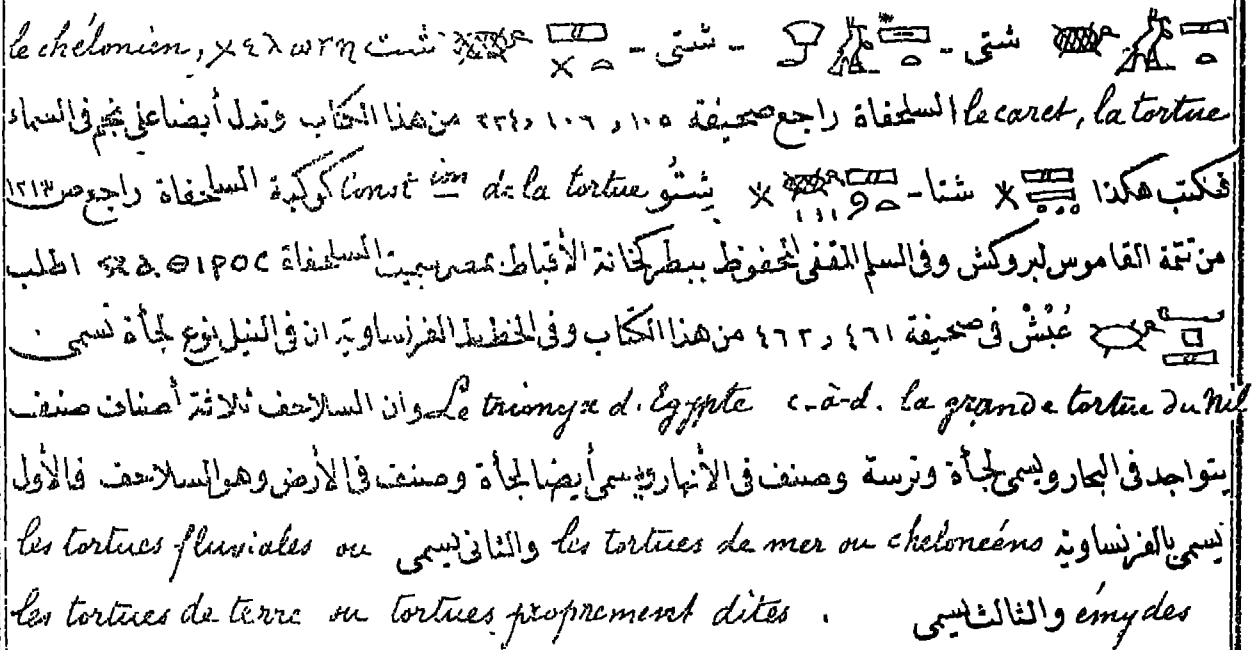 شتى - - شتى - شت χελωνη, le chélonien
le caret, la tortue السلحفاة راجع صحيفة ١٠٥ و ١٠٦ و ٢٢٤ من هذا الكتاب وتدل أيضا على نجم فى السماء
فتكتب هكذا شتا - شتو Constion de la tortue كوكبة السلحفاة راجع ص ١٢١٣
من تتمة القاموس لبروكش وفى السلم المقفى المحفوظ ببطركخانة الأقباط بمصر سميت السلحفاة اطلب
عُبْش فى صحيفة ٤٦١ و ٤٦٢ من هذا الكتاب وفى الخطط الفرنساوية ان فى النيل نوع لجأة تسمى
Le trionyx d'Egypte c-à-d. la grande tortue du Nil وان السلاحف ثلاثة أصناف صنف
يتواجد فى البحار ويسمى لجأة وترسة وصنف فى الأنهار ويسمى أيضا لجأة وصنف فى الأرض وهو السلاحف فالأول
يسمى بالفرنساوية les tortues de mer ou chelonéens والثانى يسمى les tortues fluviales ou
émydes والثالث يسمى les tortues de terre ou tortues proprement dites .